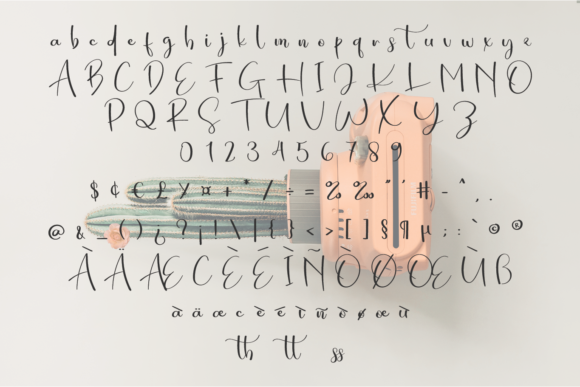 a b c d e f g h i j k l m n o p q r s t u v w x y z
A B C D E F G H I J K L M N O
P Q R S T U V W X Y Z
0 1 2 3 4 5 6 7 8 9
$ ¢ € £ ¥ ¤ + * / ÷ = ‰ ‱ " ' # - ^ , .
@ & _ ( ) ¿ ? ¡ ! \ | { } < > [ ] § ¶ µ ; : ` © ®
À Ä Æ Ç È Ë Ì Ñ Ò Ø Œ Ù ß
à ä æ c è ë ì ñ ò ø œ ù
th tt ss